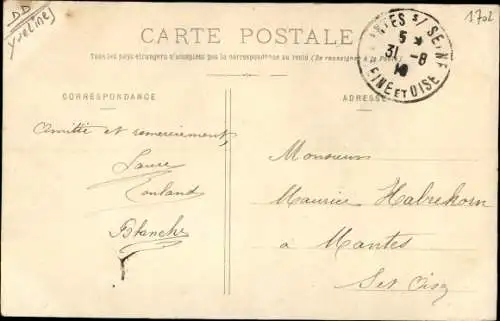 DD
Yvelines
1702
CARTE POSTALE
Tous les pays étrangers n'acceptent pas la correspondance au recto (Se renseigner à la Poste)
MANTES S/ SEINE
5
31 -8
10
SEINE ET OISE
CORRESPONDANCE
ADRESSE
Amitié et remerciement,
Laure
Blanche
Monsieur
Maurice Habrekorn
à Mantes
Set Oise